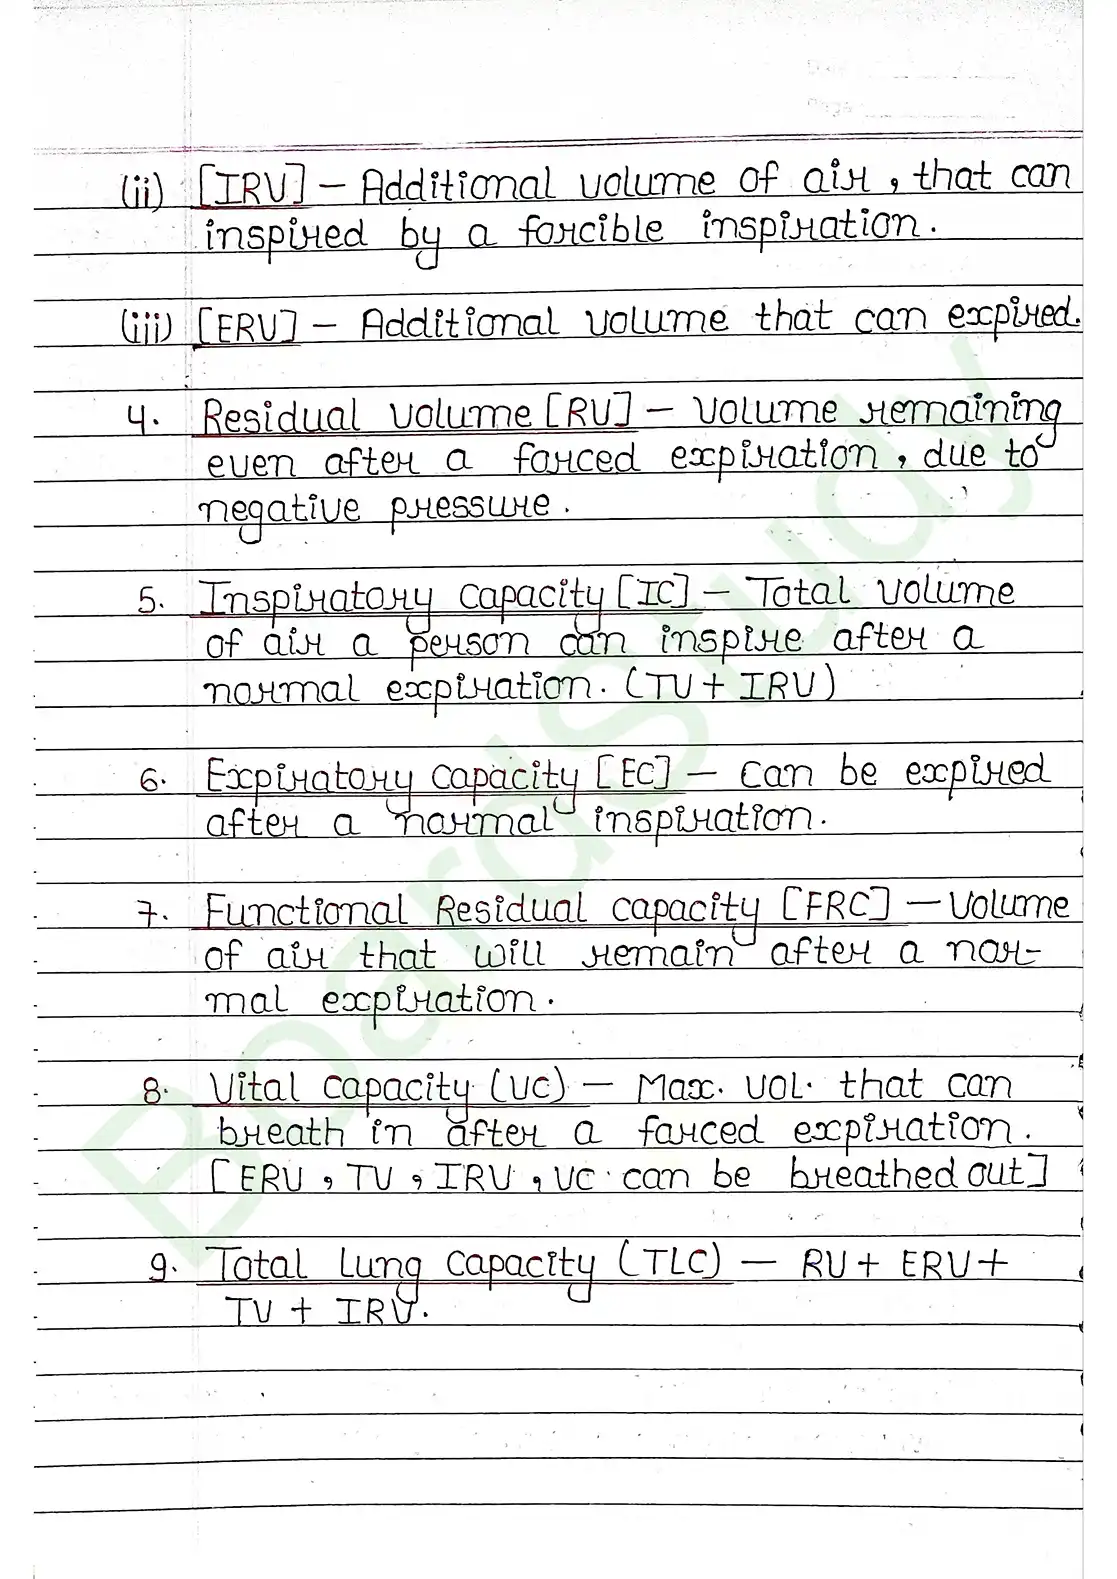 (ii) [IRV] – Additional volume of air, that can
inspired by a forcible inspiration.
(iii) [ERV] – Additional volume that can expired.
4. Residual volume [RV] – Volume remaining
even after a forced expiration, due to
negative pressure.
5. Inspiratory capacity [IC] – Total volume
of air a person can inspire after a
normal expiration. (TV + IRV)
6. Expiratory capacity [EC] – Can be expired
after a normal inspiration.
7. Functional Residual capacity [FRC] – Volume
of air that will remain after a nor-
mal expiration.
8. Vital capacity (VC) – Max. vol. that can
breath in after a forced expiration.
[ERV, TV, IRV, VC can be breathed out]
9. Total Lung Capacity (TLC) – RV + ERV +
TV + IRV.
BoardStudy